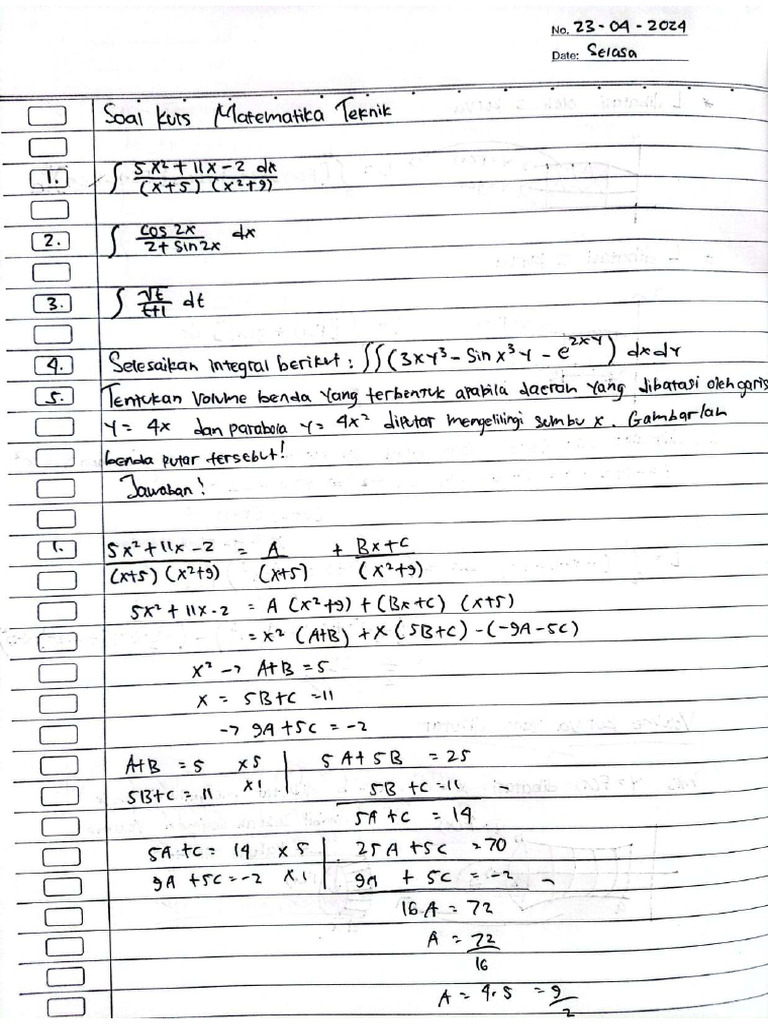 No. 23-04-2024
Date: Selasa
Soal kuis Matematika Teknik
1. ∫ 5x²+11x-2 dx / (x+5) (x²+9)
2. ∫ cos 2x / 2+ sin 2x dx
3. ∫ √t / t+1 dt
4. Selesaikan integral berikut : ∫∫ (3xy³ - sin x³y - e^2xy) dxdy
5. Tentukan volume benda yang terbentuk apabila daerah yang dibatasi oleh garis
y = 4x dan parabola y = 4x² diputar mengelilingi sumbu x. Gambarlah
benda putar tersebut!
Jawaban!
1. 5x²+11x-2 / (x+5) (x²+9) = A / (x+5) + Bx+C / (x²+9)
5x²+11x-2 = A (x²+9) + (Bx+C) (x+5)
= x² (A+B) + x (5B+C) - (-9A-5C)
x² → A+B = 5
x = 5B+C = 11
→ 9A+5C = -2
A+B = 5 x5 | 5A+5B = 25
5B+C = 11 x1 | 5B+C = 11 -
5A+C = 14
5A+C = 14 x5 | 25A+5C = 70
9A+5C = -2 x1 | 9A+5C = -2 -
16A = 72
A = 72/16
A = 4.5 = 9/2